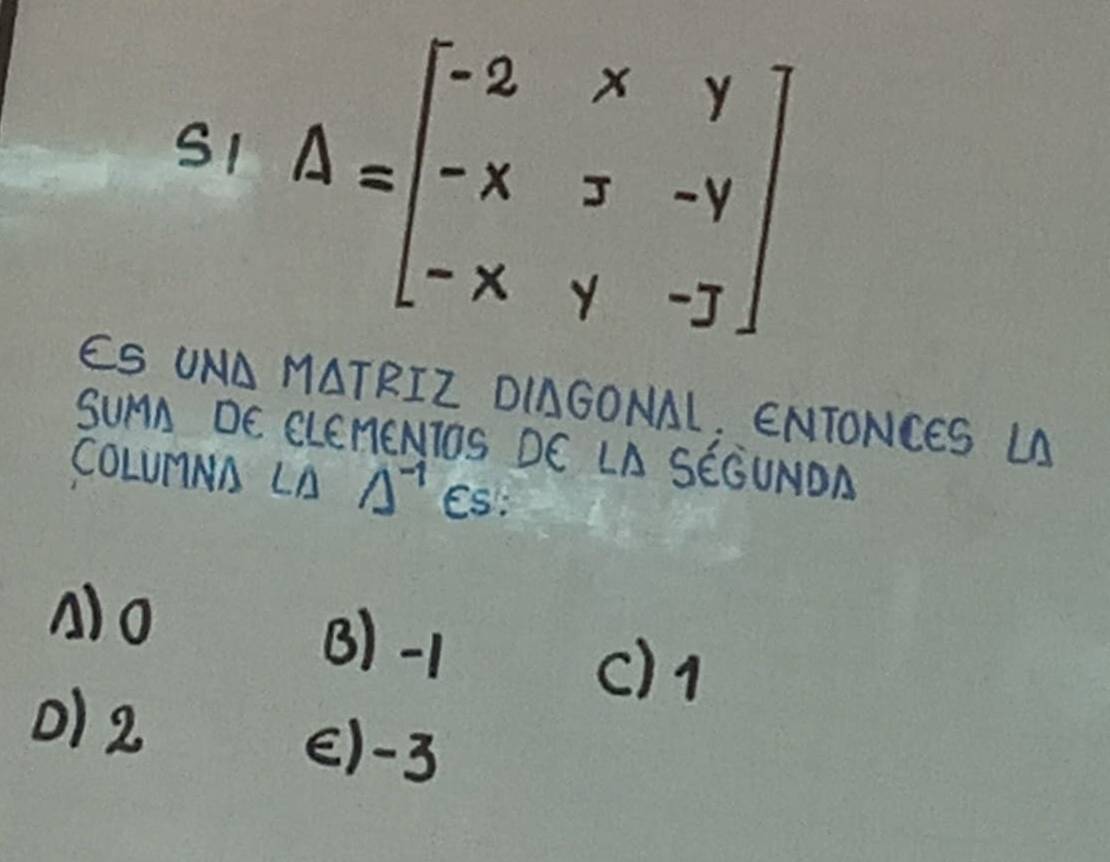 SI A = [ -2 x y
-x J -y
-x y -J ]
ES UNA MATRIZ DIAGONAL. ENTONCES LA
SUMA DE ELEMENTOS DE LA SÉGUNDA
COLUMNA LA A⁻¹ ES:
A) 0 B) -1 C) 1
D) 2 E) -3